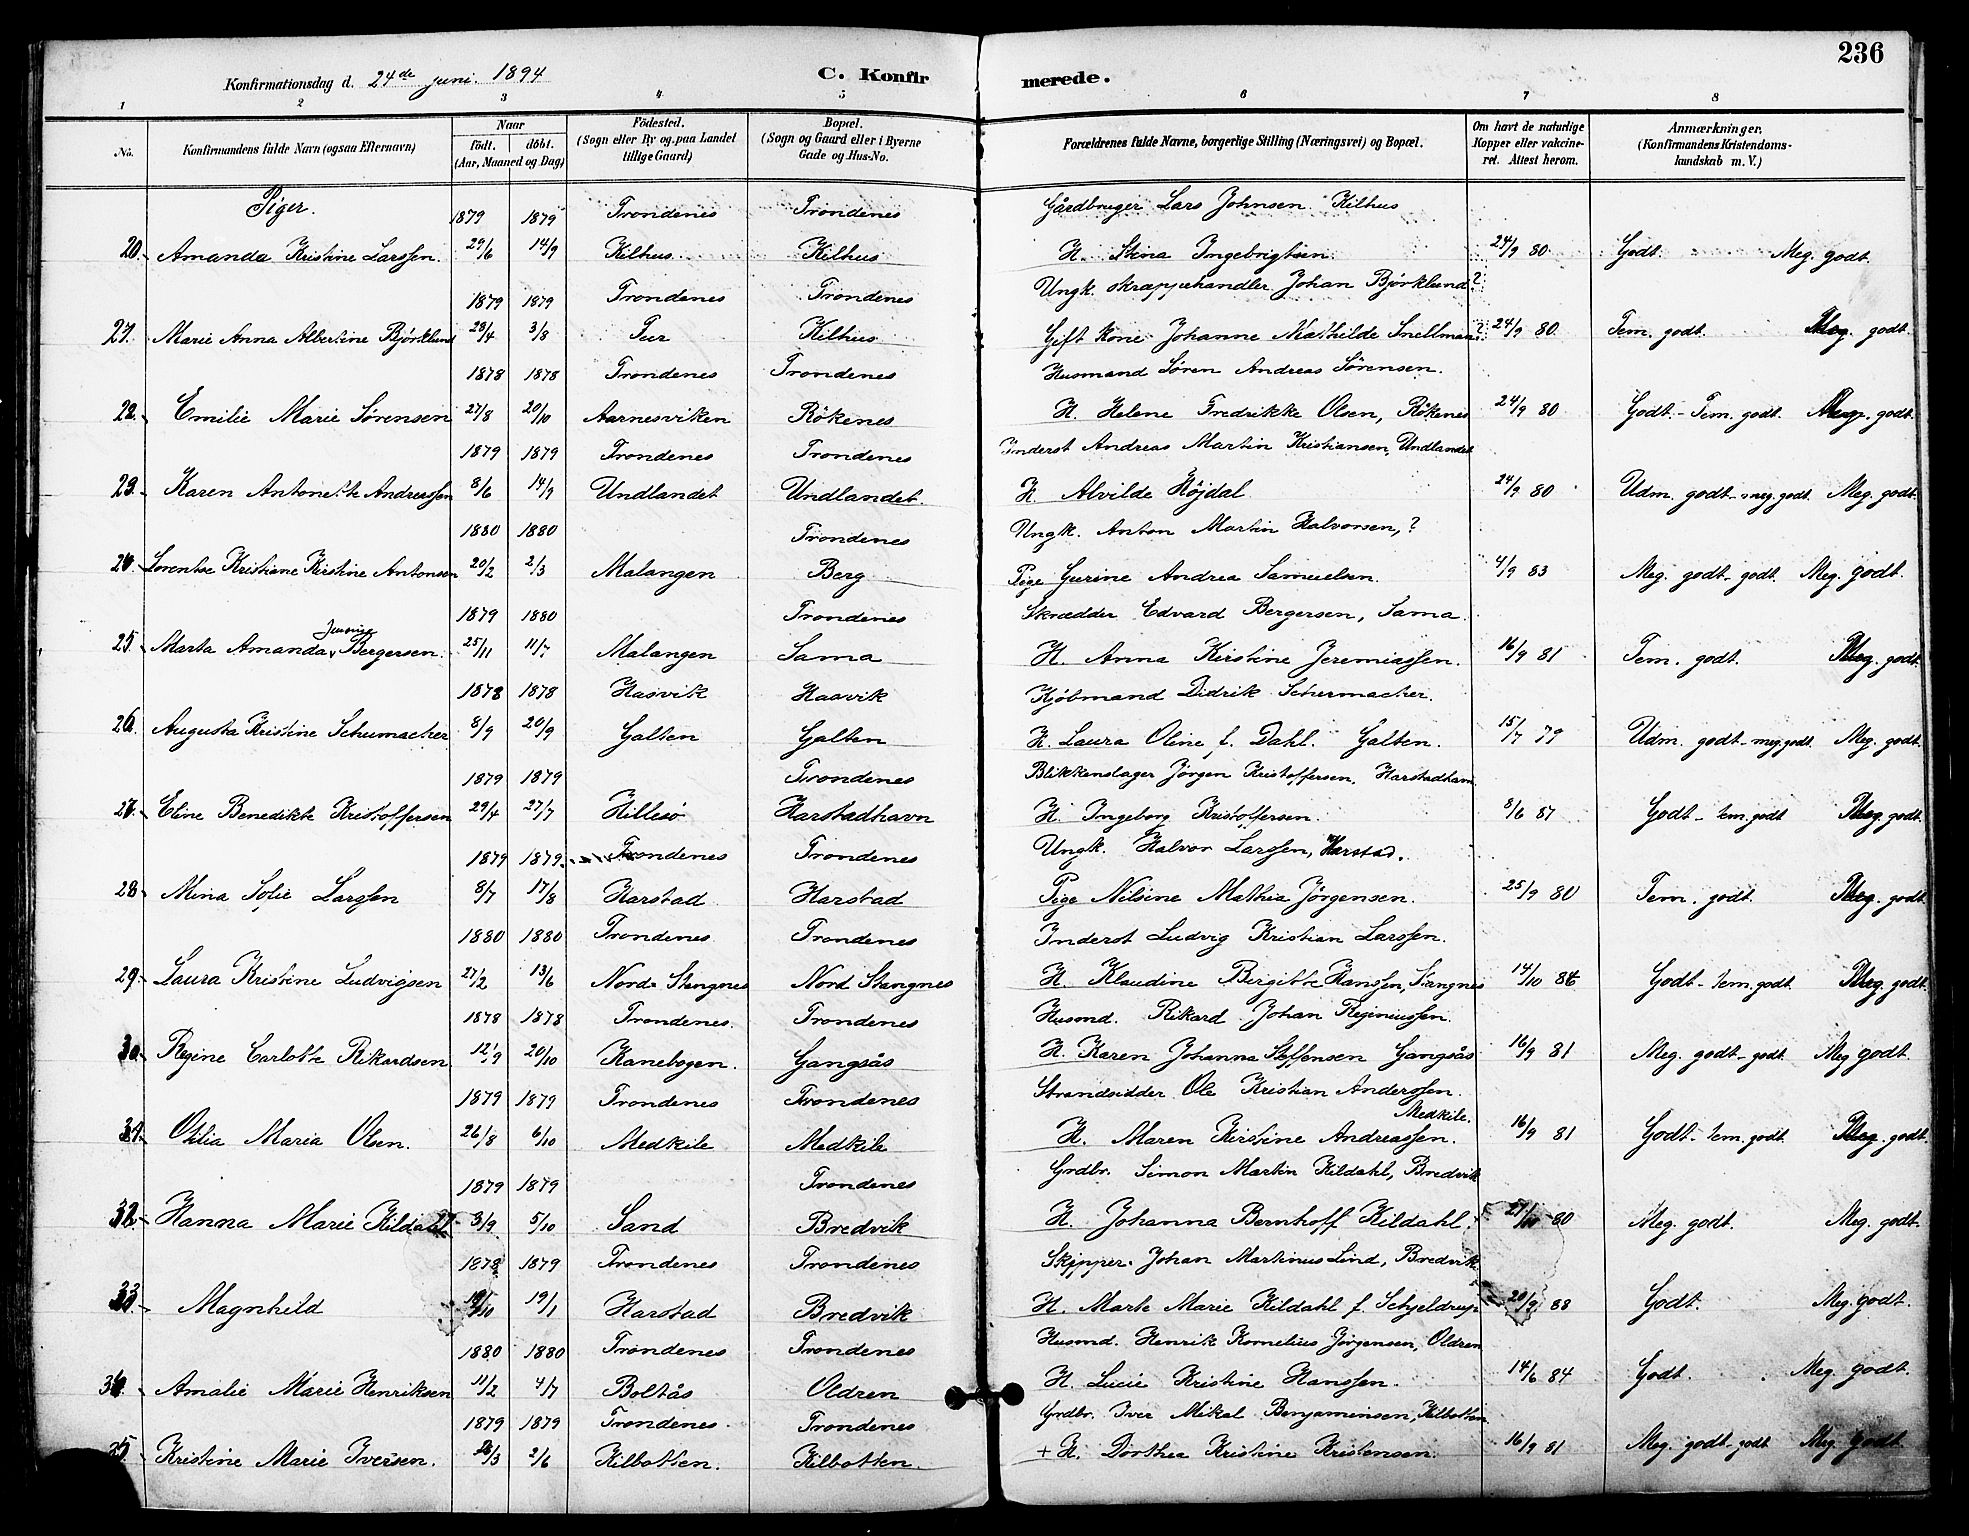 236
Konfirmationsdag d. 24de juni 1894
C. Konfirmerede.
1 2 3 4 5 6 7 8
No. Konfirmandens fulde Navn (ogsaa Efternavn) Naar födt. döbt. (Aar, Maaned og Dag) Födested. (Sogn eller By og paa Landet tillige Gaard) Bopæl. (Sogn og Gaard eller i Byerne Gade og Hus-No. Forældrenes fulde Navne, borgerlige Stilling (Næringsvei) og Bopæl. Om havt de naturlige Kopper eller vakcineret. Attest herom. Anmærkninger. (Konfirmandens Kristendomskundskab m. V.)
Piger. 1879 1879 Trondenes Trondenes Gårdbruger Lars Johnsen Kilhus
20. Amanda Kristine Larssen. 29/6 14/9 Kilhus Kilhus H. Stina Ingebrigtsen. 24/9 80 Godt. Meg. godt.
1879 1879 Trondenes Trondenes Ungk. skræppehandler Johan Bjørklund?
21. Marie Anna Albertine Bjørklund 28/4 3/8 Tur Kilhus Gift Kone Johanne Mathilde Snellman? 24/9 80 Tem. godt. Meg. godt
1878 1878 Trondenes Trondenes Husmand Søren Andreas Sørensen.
22. Emilie Marie Sørensen 27/8 20/10 Aarnesviken Rökenes H. Helene Fredrikke Olsen, Rökenes 24/9 80 Godt - Tem. godt. Meg. godt.
1879 1879 Trondenes Trondenes Inderst Andreas Martin Kristiansen, Undlandet
23. Karen Antonette Andreassen 8/6 14/9 Undlandet Undlandet. H. Alvilde Højdal. 24/9 80 Udm. godt - meg. godt. Meg. godt.
1880 1880 Trondenes Ungk. Anton Martin Halvorsen, ?
24. Lorentse Kristiane Kirstine Antonsen 20/2 2/3 Malangen Berg Pige Gurine Andrea Samuelsen. 4/9 83 Meg. godt - godt. Meg. godt.
1879 1880 Trondenes Skrædder Edvard Bergersen, Sama.
25. Marta Amanda Jensine Bergersen. 25/11 11/7 Malangen Sama H. Anna Kirstine Jeremiassen. 16/9 81 Tem. godt. Meg. godt.
1878 1878 Hasvik Haavik Kjöbmand Didrik Schumacher.
26. Augusta Kristine Schumacher 8/9 20/9 Galten Galten H. Laura Oline f. Dahl. Galten. 15/7 79 Udm. godt - meg. godt. Meg. godt.
1879 1879 Trondenes Blikkenslager Jörgen Kristoffersen. Harstadhavn
27. Eline Benedikte Kristoffersen 29/4 27/7 Hillesö Harstadhavn H. Ingeborg Kristoffersen. 8/6 87 Godt - tem. godt Meg. godt.
1879 1879. Trondenes Trondenes Ungk. Halvor Larssen, Harstad.
28. Mina Sofie Larssen 8/7 17/8 Harstad Harstad Pige Nilsine Mathea Jörgensen. 25/9 80 Tem. godt. Meg. godt.
1880 1880 Trondenes. Trondenes Inderst Ludvig Kristian Larssen.
29. Laura Kristine Ludvigsen 27/2 13/6 Nord-Stengnes Nord Stengnes H. Klaudine Birgitte Hanssen, Stangnes 14/10 86 Godt - tem. godt. Meg. godt.
1878 1878 Trondenes. Trondenes Husmd. Rikard Johan Reginiussen.
30. Regine Carlotte Rikardsen 12/9 20/10 Kanebogen. Gangsås H. Karen Johanna Steffensen Gangsås 16/9 81 Meg. godt - godt. Meg godt.
1879 1879 Trondenes Trondenes Strandsidder Ole Kristian Anderssen.
31. Otilia Maria Olsen. 26/8 6/10 Medkile Medkile H. Maren Kirstine Andreassen. Medkile. 16/9 81 Godt - tem. godt. Meg. godt.
1879 1879 Trondenes Grdbr. Simon Martin Kildahl, Bredvik
32. Hanna Marie Kildahl 3/9 5/10 Sand Bredvik H. Johanna Bernhoff Kildahl. 27/10 80 Meg. godt. Meg. godt.
1878 1879 Trondenes Trondenes Skipper. Johan Martinus Lind, Bredvik.
33. Magnhild 19/1 Harstad Bredvik H. Marte Marie Kildahl f. Schjeldrup 20/9 88 Godt. Meg. godt.
1880 1880 Trondenes Trondenes Husmd. Henrik Kornelius Jörgensen, Oldren
34. Amalie Marie Henriksen 11/2 4/7 Boltås Oldren H. Lucie Kristine Hanssen. 14/6 84 Godt. Meg. godt.
1879 1879 Trondenes Trondenes Grdbr. Iver Mikal Benjaminsen, Kilbotten
35. Kristine Marie Iversen. 2/6 Kilbotten. Kilbotten + H. Dorthea Kristine Kristensen. 16/9 81 Meg. godt - godt Meg. godt.